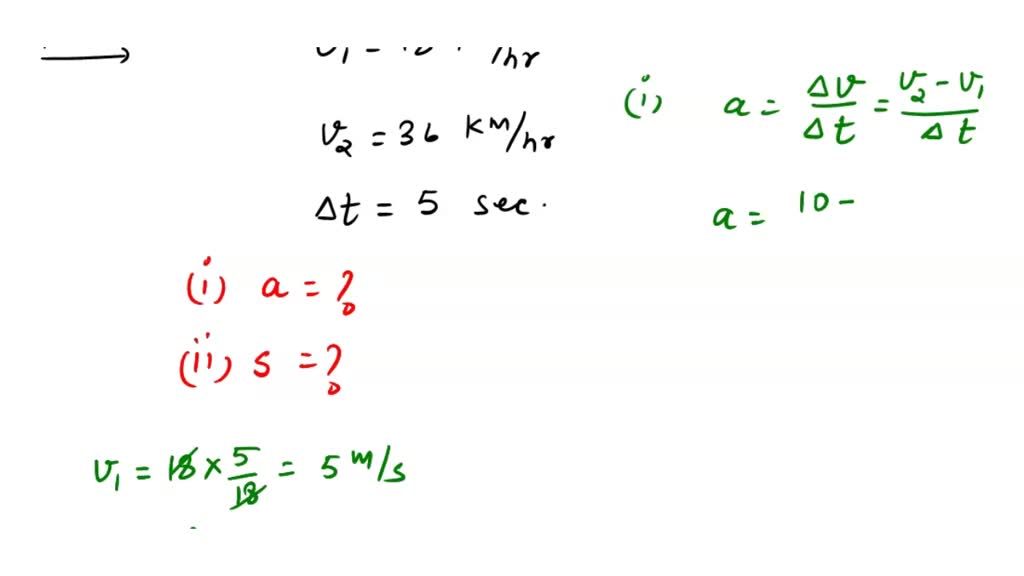 v₁ = 18 /hr
v₂ = 36 KM/hr
Δt = 5 sec.
(i) a = ?
(ii) s = ?
v₁ = 18 × 5/18 = 5 m/s
(i) a = Δv/Δt = v₂ - v₁/Δt
a = 10 -